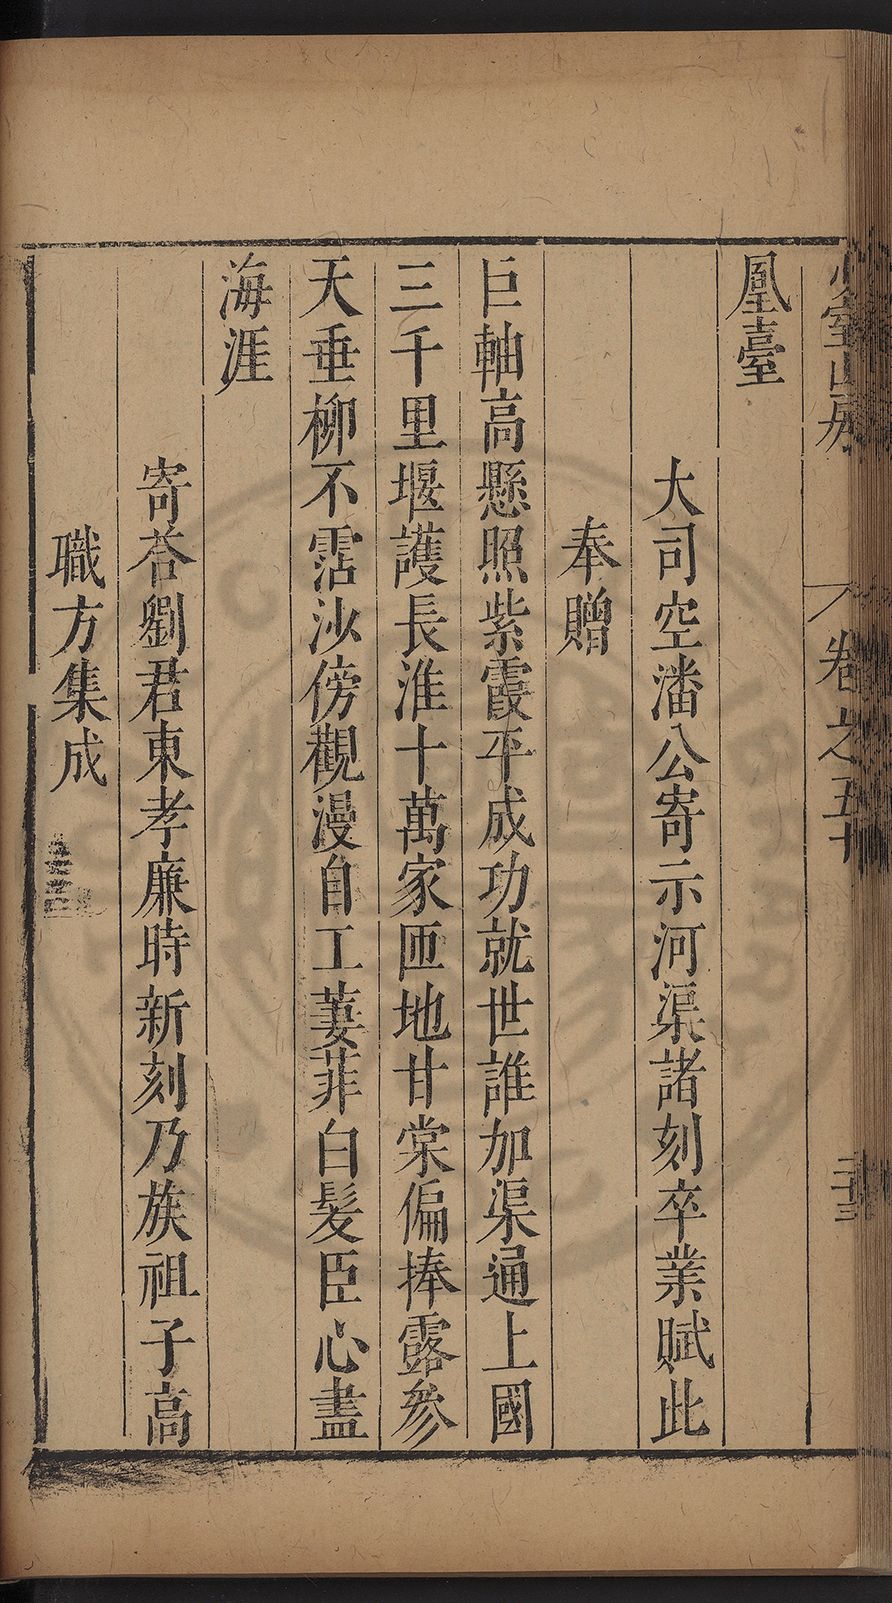 山房
卷之五十
凰臺
大司空潘公寄示河渠諸刻卒業賦此
奉贈
巨軸高懸照紫霞平成功就世誰加渠通上國
三千里堰護長淮十萬家匝地甘棠偏捧露參
天垂柳不霑沙傍觀漫自工萋菲白髮臣心盡
海涯
寄荅劉君東孝廉時新刻乃族祖子高
職方集成